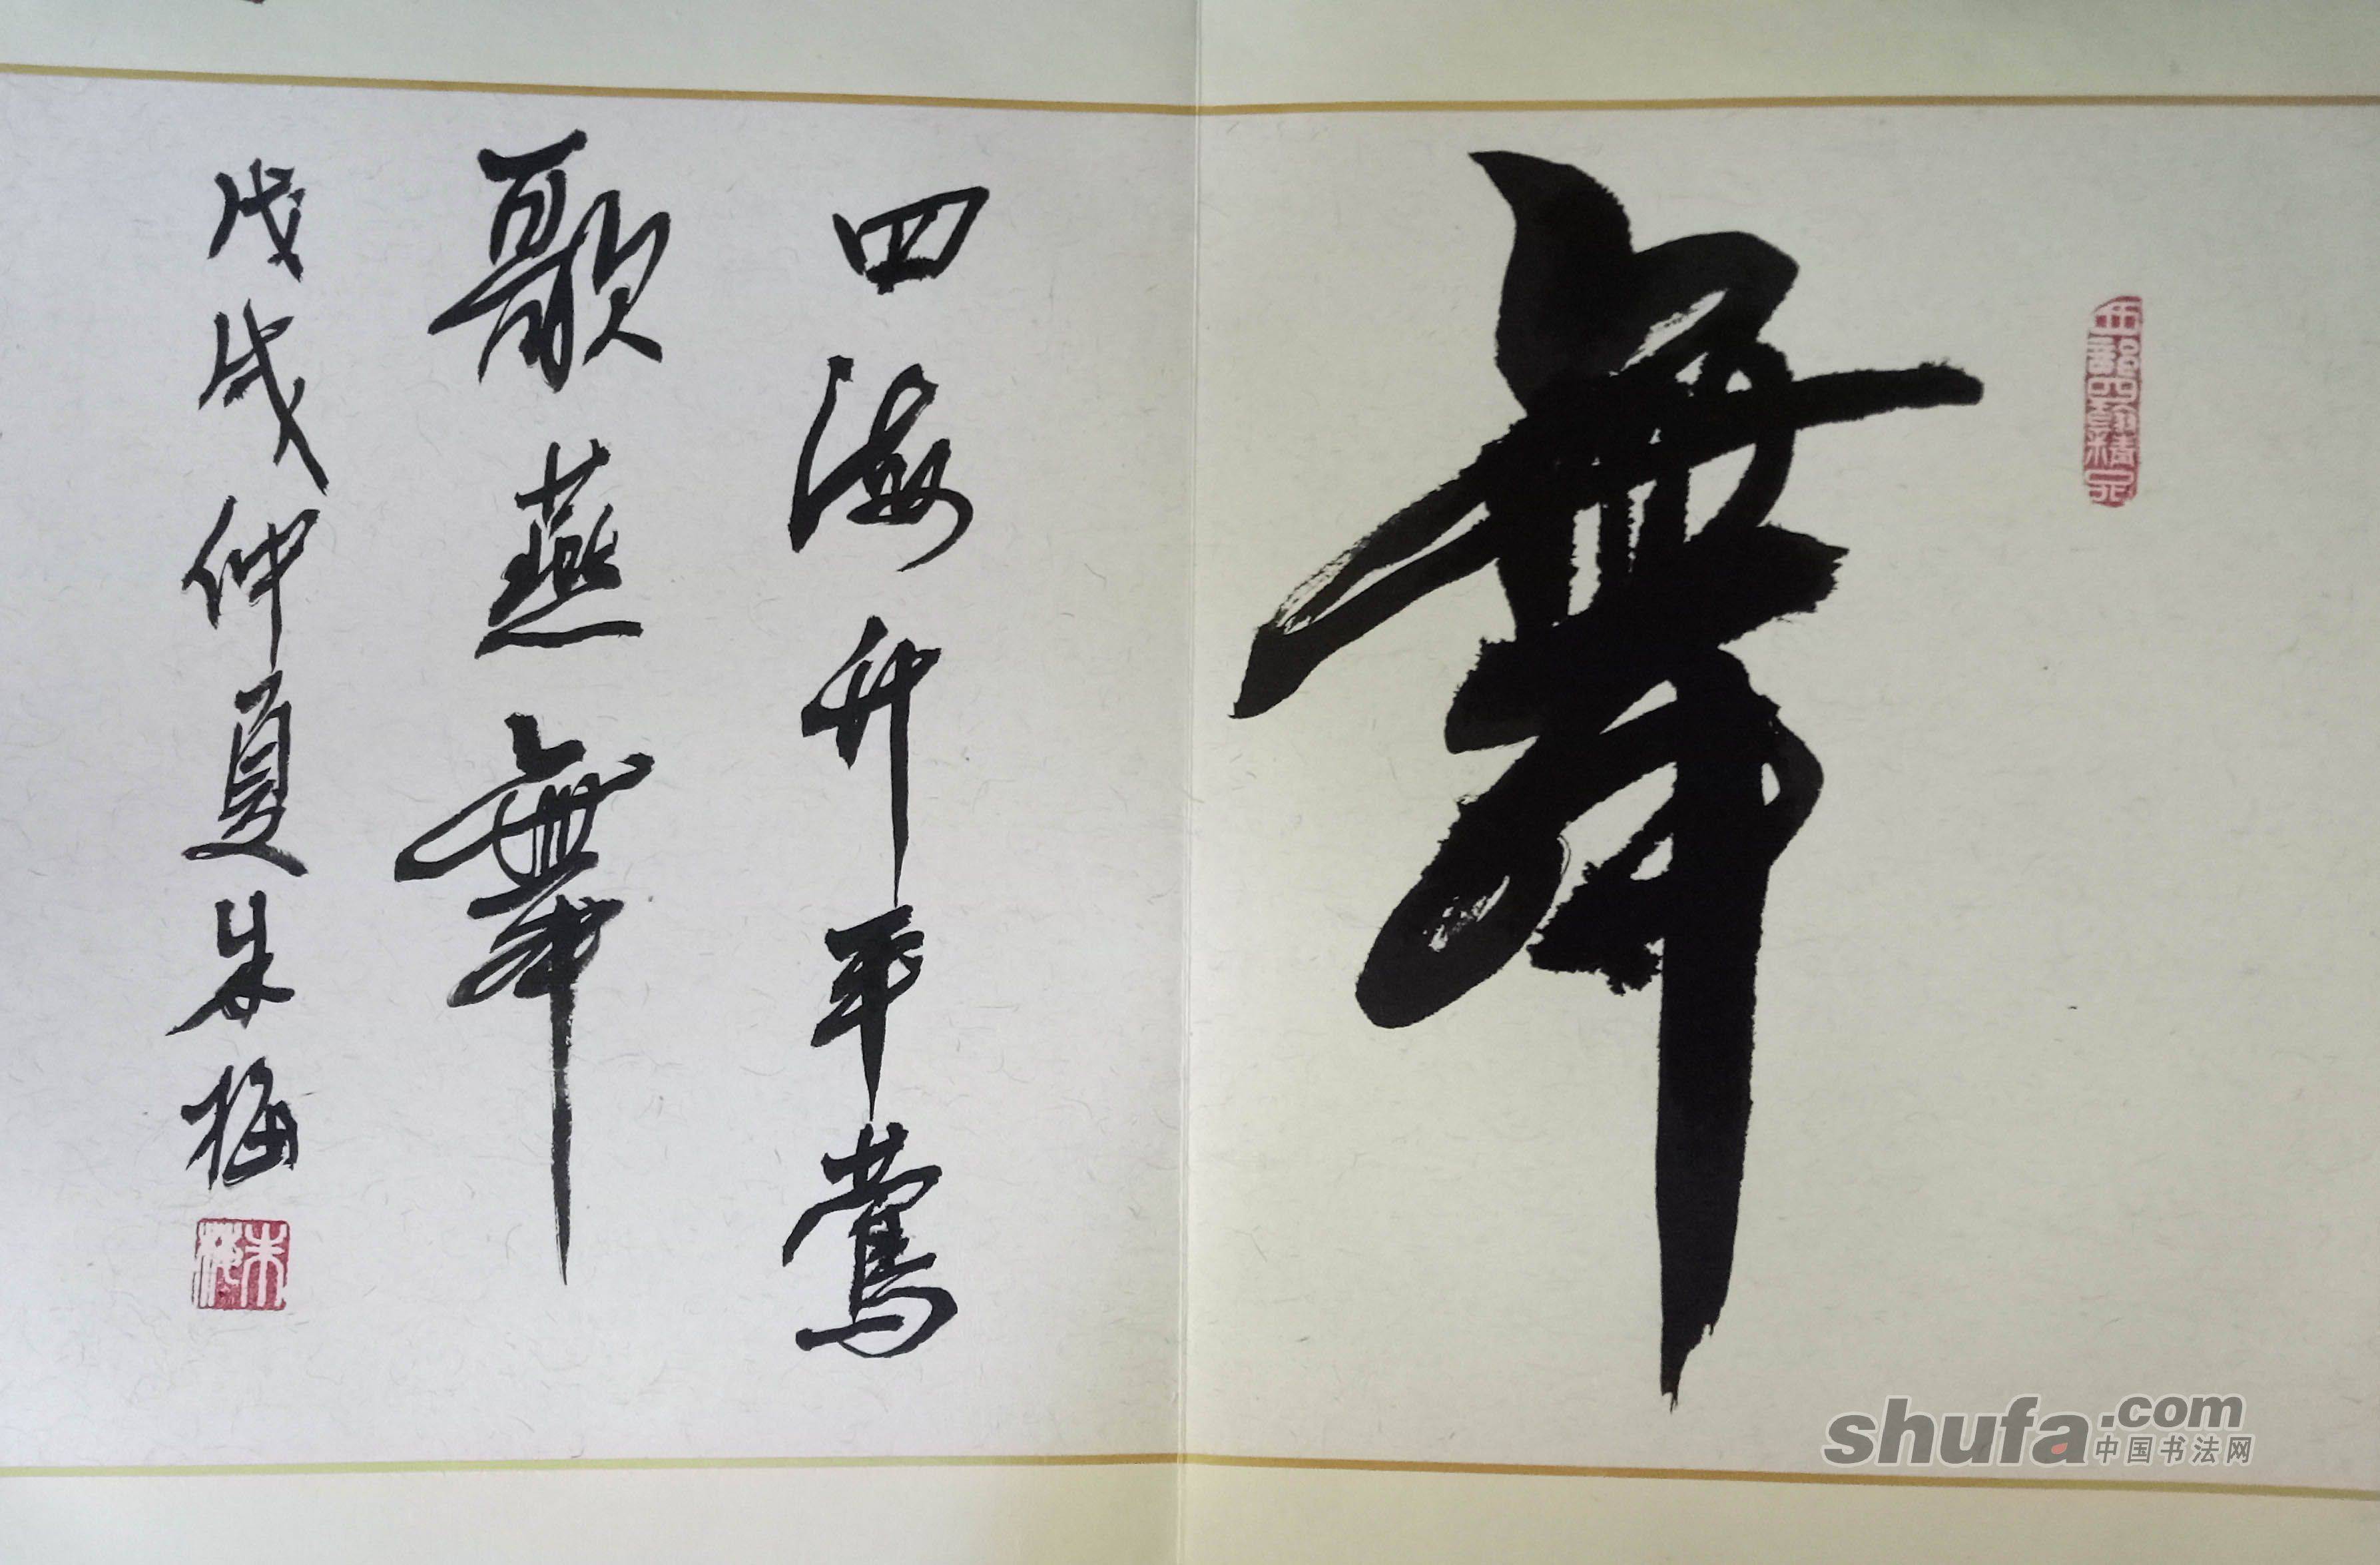 舞
四海升平莺
歌燕舞
戊戌仲夏朱梅
朱梅
shufa.com
中国书法网